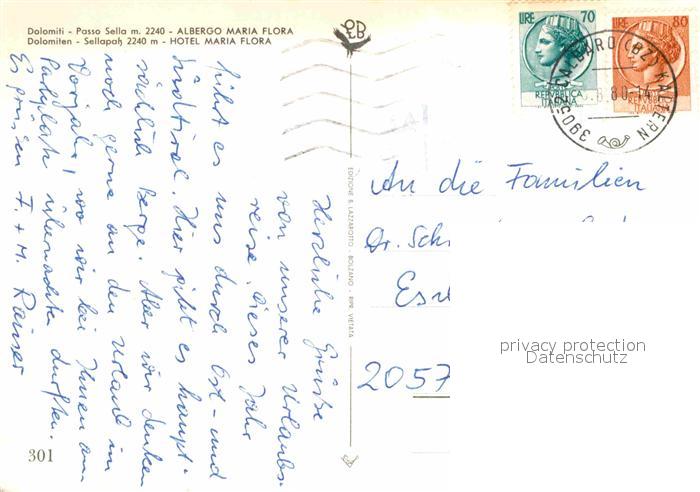 Dolomiti - Passo Sella m. 2240 - ALBERGO MARIA FLORA
Dolomiten - Sellapaß 2240 m - HOTEL MARIA FLORA
Herzliche Grüße
von unserer Urlaubs-
reise. Dieses Jahr
führt es uns durch Ost- und
Südtirol. Hier gibt es haupt-
sächlich Berge. Aber wir denken
noch gerne an den Urlaub im
Vorjahr, wo wir bei Ihnen am
Parkplatz übernachten durften.
Es grüßen F. + M. Rainer
301
EDIZIONE B. LAZZAROTTO - BOLZANO - RIPR. VIETATA
LIRE 70
REPVBBLICA
ITALIANA
LIRE 80
REPVBBLICA
ITALIANA
39052 CALDARO (BZ) KALTERN
.8.80
An die Familien
Dr. Sch
Es
2057
privacy protection
Datenschutz